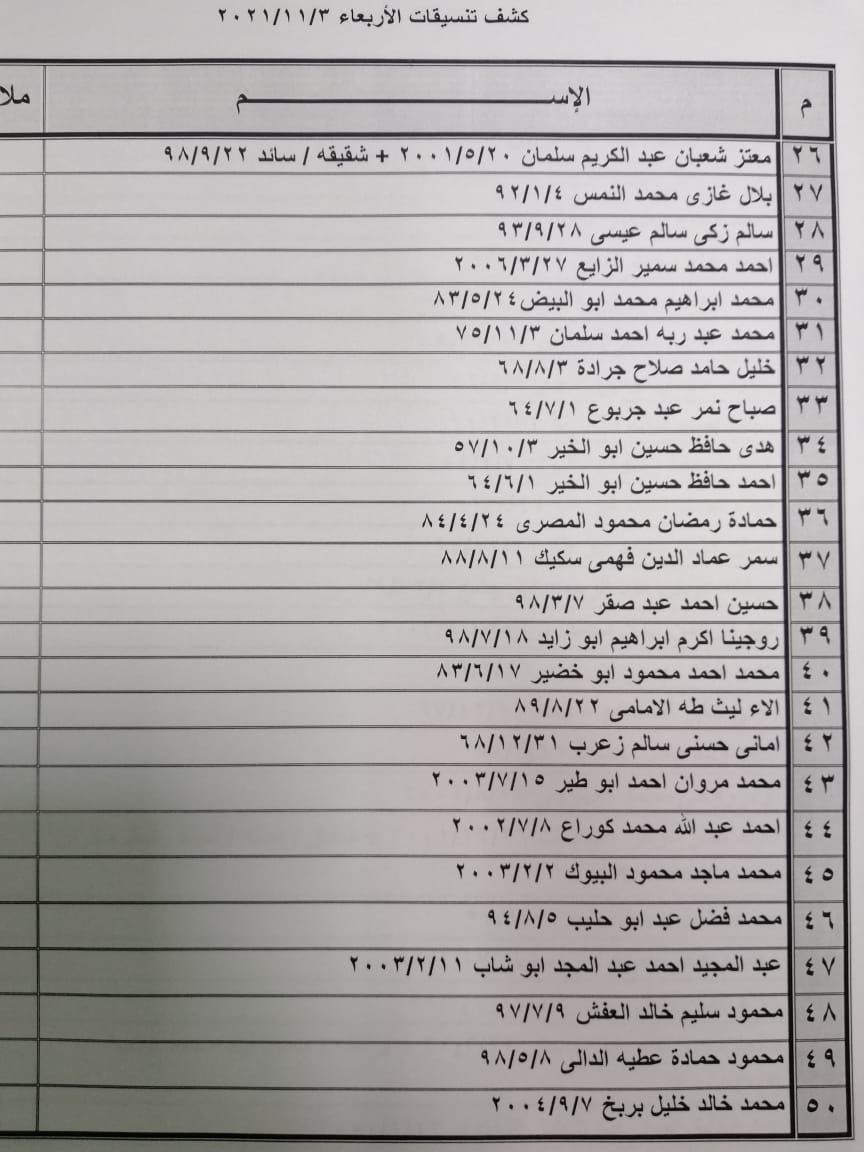 كشف تنسيقات الأربعاء ٢٠٢١/١١/٣
م الإســـــــــــــــم ملا
٢٦ معتز شعبان عبد الكريم سلمان ٢٠٠١/٥/٢٠ + شقيقه / سائد ٩٨/٩/٢٢
٢٧ بلال غازى محمد النمس ٩٢/١/٤
٢٨ سالم زكى سالم عيسى ٩٣/٩/٢٨
٢٩ احمد محمد سمير الزايع ٢٠٠٦/٣/٢٧
٣٠ محمد ابراهيم محمد ابو البيض ٨٣/٥/٢٤
٣١ محمد عبد ربه احمد سلمان ٧٥/١١/٣
٣٢ خليل حامد صلاح جرادة ٦٨/٨/٣
٣٣ صباح نمر عبد جربوع ٦٤/٧/١
٣٤ هدى حافظ حسين ابو الخير ٥٧/١٠/٣
٣٥ احمد حافظ حسين ابو الخير ٦٤/٦/١
٣٦ حمادة رمضان محمود المصرى ٨٤/٤/٢٤
٣٧ سمر عماد الدين فهمى سكيك ٨٨/٨/١١
٣٨ حسين احمد عبد صقر ٩٨/٣/٧
٣٩ روجينا اكرم ابراهيم ابو زايد ٩٨/٧/١٨
٤٠ محمد احمد محمود ابو خضير ٨٣/٦/١٧
٤١ الاء ليث طه الامامى ٨٩/٨/٢٢
٤٢ امانى حسنى سالم زعرب ٦٨/١٢/٣١
٤٣ محمد مروان احمد ابو طير ٢٠٠٣/٧/١٥
٤٤ احمد عبد الله محمد كوراع ٢٠٠٢/٧/٨
٤٥ محمد ماجد محمود البيوك ٢٠٠٣/٢/٢
٤٦ محمد فضل عبد ابو حليب ٩٤/٨/٥
٤٧ عبد المجيد احمد عبد المجد ابو شاب ٢٠٠٣/٢/١١
٤٨ محمود سليم خالد العفش ٩٧/٧/٩
٤٩ محمود حمادة عطيه الدالى ٩٨/٥/٨
٥٠ محمد خالد خليل بربخ ٢٠٠٤/٩/٧